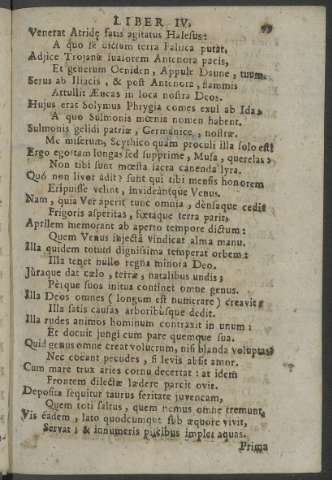 LIBER IV.
Venerat Atridę fatis agitatus Halesus:
A quo se dictum terra Falisca putat.
Adjice Trojanæ suasorem Antenora pacis,
Et generum Oeniden, Appule Daune, tuum.
Serus ab Iliacis, & post Antenora, flammis
Attullit Æneas in loca nostra Deos.
Hujus erat Solymus Phrygia comes exul ab Ida;
A quo Sulmonis mœnia nomen habent.
Sulmonis gelidi patriæ, Germanice, nostræ.
Me miserum, Scythico quam procul illa solo est!
Ergo ego tam longas sed supprime, Musa, querelas:
Non tibi sunt mœsta sacra canenda lyra.
Quó non livor adit? sunt qui tibi mensis honorem
Eripuisse velint, invideantque Venus.
Nam, quia Ver aperit tunc omnia, densaque cedit
Frigoris asperitas, fœtaque terra parit,
Aprilem memorant ab aperto tempore dictum:
Quem Venus injectâ vindicat alma manu.
Illa quidem totum dignissima temperat orbem:
Illa tenet nullo regna minora Deo.
Juraque dat cælo, terræ, natalibus undis;
Perque suos initus continet omne genus.
Illa Deos omnes (longum est numerare) creavit:
Illa satis causas arboribusque dedit.
Illa rudes animos hominum contraxit in unum:
Et docuit jungi cum pare quemque sua.
Quid genus omne creat volucrum, nisi blanda voluptas?
Nec coeant pecudes, si levis absit amor.
Cum mare trux aries cornu decertat: at idem
Frontem dilectæ lædere parcit ovis.
Deposita sequitur taurus feritate juvencam,
Quem toti saltus, quem nemus omne tremunt.
Vis eadem, lato quodcumque sub æquore vivit,
Servat; & innumeris piscibus implet aquas.
Prima